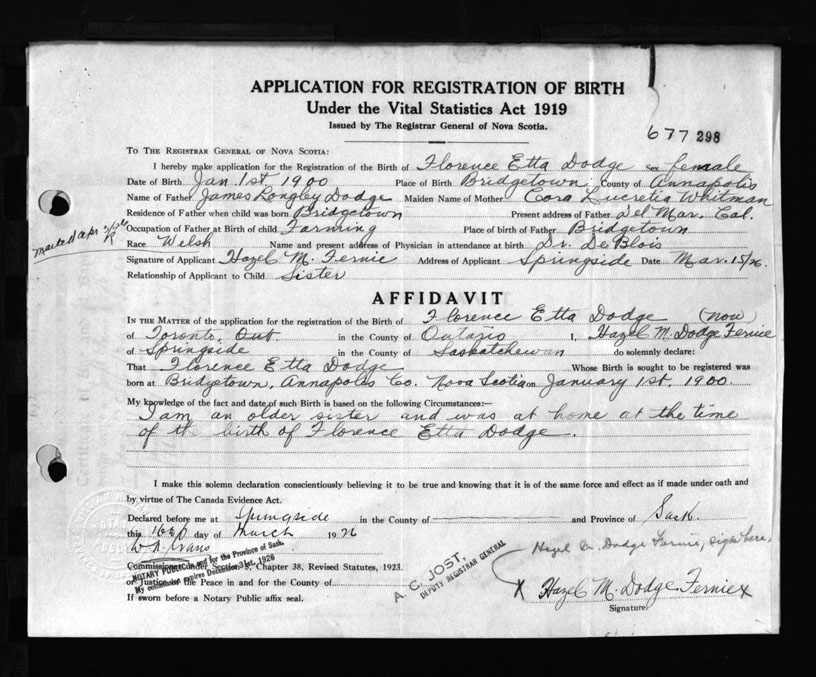 APPLICATION FOR REGISTRATION OF BIRTH
Under the Vital Statistics Act 1919
Issued by The Registrar General of Nova Scotia.
677 298
TO THE REGISTRAR GENERAL OF NOVA SCOTIA:
I hereby make application for the Registration of the Birth of Florence Etta Dodge sex female
Date of Birth Jan. 1st. 1900 Place of Birth Bridgetown County of Annapolis
Name of Father James Longley Dodge Maiden Name of Mother Cora Lucretia Whitman
Residence of Father when child was born Bridgetown Present address of Father Del Mar, Cal.
Occupation of Father at Birth of child Farming Place of birth of Father Bridgetown
Race Welsh Name and present address of Physician in attendance at birth Dr. DeBlois
Signature of Applicant Hazel M. Fernie Address of Applicant Springside Date Mar. 15/26.
Relationship of Applicant to Child Sister
AFFIDAVIT
IN THE MATTER of the application for the registration of the Birth of Florence Etta Dodge (now)
of Toronto, Ont. in the County of Ontario I, Hazel M. Dodge Fernie
of Springside in the County of Saskatchewan do solemnly declare:
That Florence Etta Dodge Whose Birth is sought to be registered was
born at Bridgetown, Annapolis Co. Nova Scotia on January 1st. 1900.
My knowledge of the fact and date of such Birth is based on the following Circumstances:—
I am an older sister and was at home at the time
of the birth of Florence Etta Dodge.
I make this solemn declaration conscientiously believing it to be true and knowing that it is of the same force and effect as if made under oath and
by virtue of The Canada Evidence Act.
Declared before me at Springside in the County of and Province of Sask.
this 16th day of March 1926
Hazel M. Dodge Fernie, sign here.
NOTARY PUBLIC in and for the Province of Sask.
My commission expires December 31st, 1926
Chapter 38, Revised Statutes, 1923.
or Justice of the Peace in and for the County of
If sworn before a Notary Public affix seal.
A. C. JOST,
DEPUTY REGISTRAR GENERAL
X Hazel M. Dodge Fernie X
Signature.